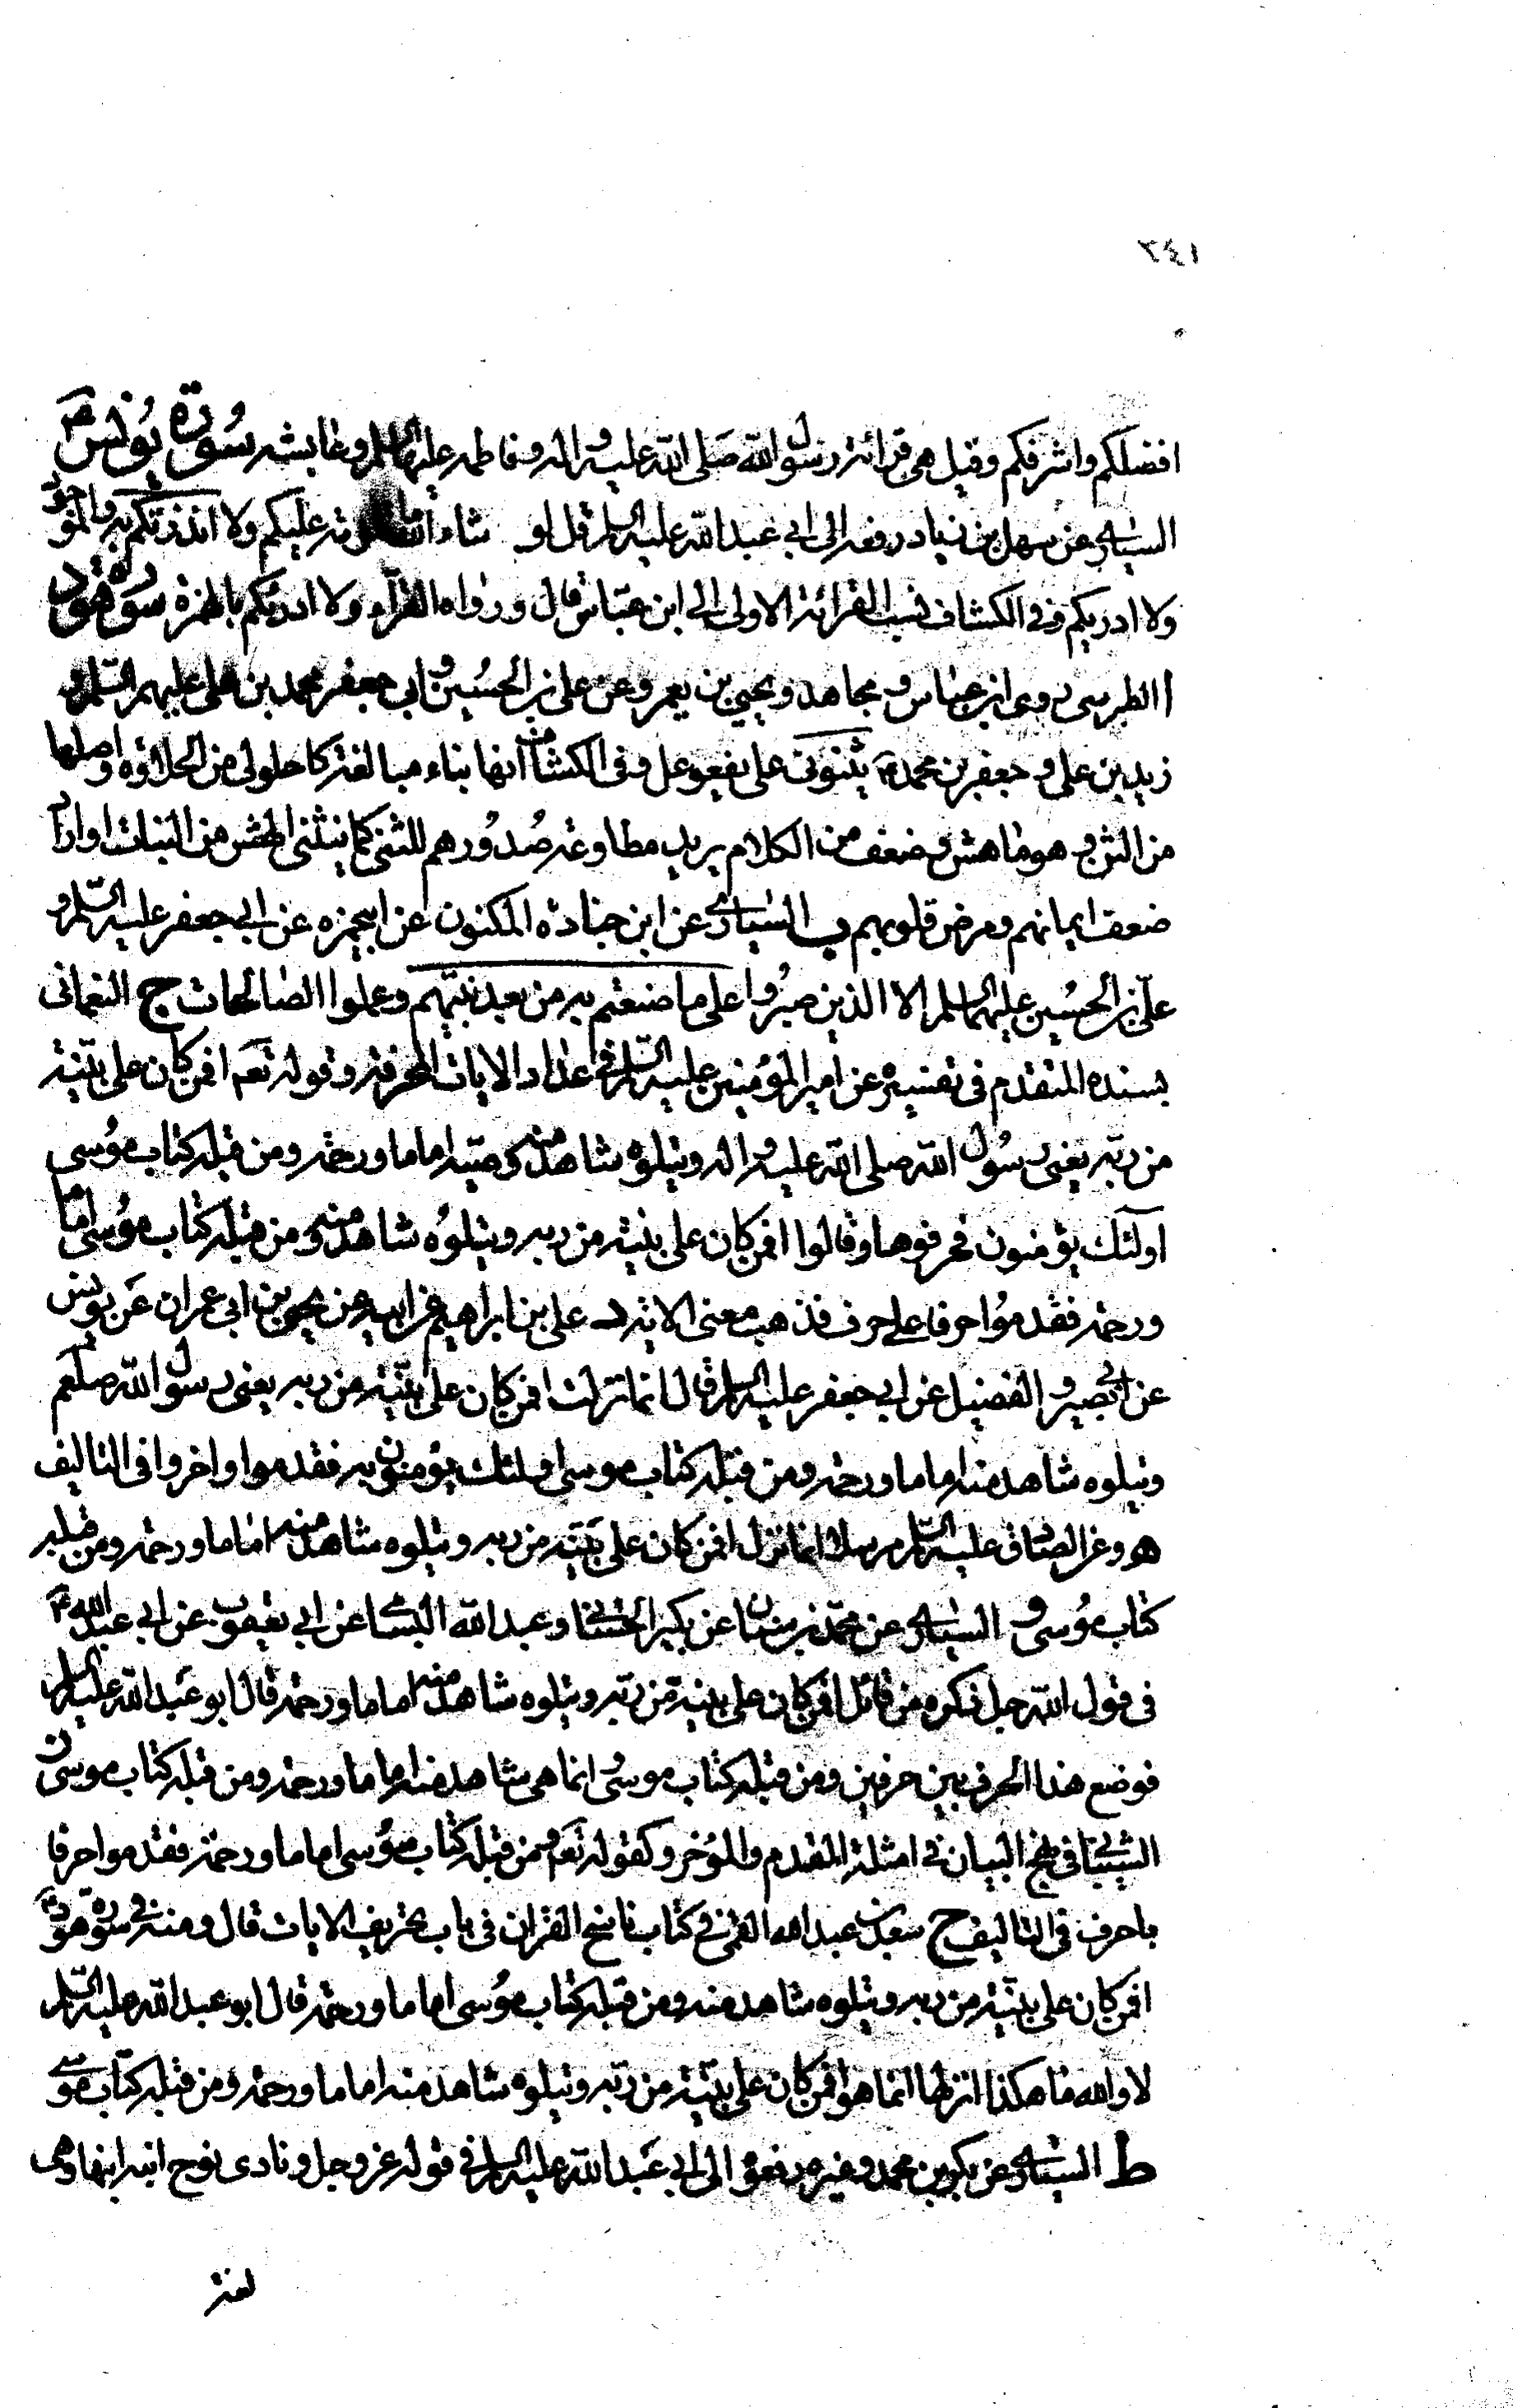 ٣٤١
افضلكم واشرفكم وقيل هي قرائة رسول الله صلى الله عليه واله وفاطمه عليها السلم وعايشه سورة يونس
السياري عن سهل بن زياد رفعه الى ابي عبد الله عليه السلم قل لو شاء الله ما تلوته عليكم ولا انذرتكم به والموجود
ولا ادريكم وفي الكشاف نسب القرائة الاولى الى ابن عباس قال ورواه الفراء ولا ادرئكم بالهمزة سورة هود
ا الطبرسي روى ابن عباس ومجاهد ويحيى بن يعمر وعن علي بن الحسين وابي جعفر محمد بن علي عليهم السلم و
زيد بن علي وجعفر بن محمد ع يثنوني على يفعوعل وفي الكشاف انها بناء مبالغة كاحلولى من الحلاوة واصلها
من الثن وهو ما هش وضعف من الكلام يريد مطاوعة صدورهم للثنى كما ينثنى الهش من النبات او اراد
ضعف ايمانهم ومرض قلوبهم ب السياري عن ابن جنادة المكنون عن ابي حمزه عن ابي جعفر عليه السلم و
علي بن الحسين عليهما السلم الا الذين صبروا على ما صنعتم به من بعد نبيهم وعملوا الصالحات ج النعماني
بسنده المتقدم في تفسيره عن امير المؤمنين عليه السلم في عداد الايات المحرفة وقوله تعم افمن كان على بينة
من ربه يعني رسول الله صلى الله عليه واله ويتلوه شاهد منه وصيه اماما ورحمة ومن قبله كتاب موسى
اولئك يؤمنون فحرفوها وقالوا افمن كان على بينة من ربه ويتلوه شاهد منه ومن قبله كتاب موسى اماما
ورحمة فقدموا حرفا على حرف فذهب معنى الاية د علي بن ابراهيم عن ابيه عن يحيى بن ابي عمران عن يونس
عن ابي بصير والفضيل عن ابي جعفر عليه السلم قال انما نزلت افمن كان على بينة من ربه يعني رسول الله صلعم
ويتلوه شاهد منه اماما ورحمة ومن قبله كتاب موسى اولئك يؤمنون به فقدموا واخروا في التاليف
ه وعن الصادق عليه السلم مرسلا انما نزل افمن كان على بينة من ربه ويتلوه شاهد منه اماما ورحمة ومن قبله
كتاب موسى و السياري عن محمد بن سنان عن بكير وعبد الله عن ابي يعفور عن ابي عبد الله ع
في قول الله جل ذكره من قائل افمن كان على بينة من ربه ويتلوه شاهد منه اماما ورحمة قال ابو عبد الله عليه السلم
فوضع هذا الحرف بين حرفين ومن قبله كتاب موسى وانما هي شاهد منه اماما ورحمة ومن قبله كتاب موسى ز
الشيباني في نهج البيان في امثلة المقدم والمؤخر وكقوله تعم ومن قبله كتاب موسى اماما ورحمة فقدموا حرفا
باحرف في التاليف ح سعد بن عبد الله القمي في كتاب ناسخ القران في باب تحريف الايات قال ومنه في سورة هود ع
افمن كان على بينة من ربه ويتلوه شاهد منه ومن قبله كتاب موسى اماما ورحمة قال ابو عبد الله عليه السلم
لا والله ما هكذا انزلها انما هو افمن كان على بينة من ربه ويتلوه شاهد منه اماما ورحمة ومن قبله كتاب موسى
ط السياري عن بكر بن محمد وغيره رفعوه الى ابي عبد الله عليه السلم في قوله عز وجل ونادى نوح ابنه ابنها وهي
لغة